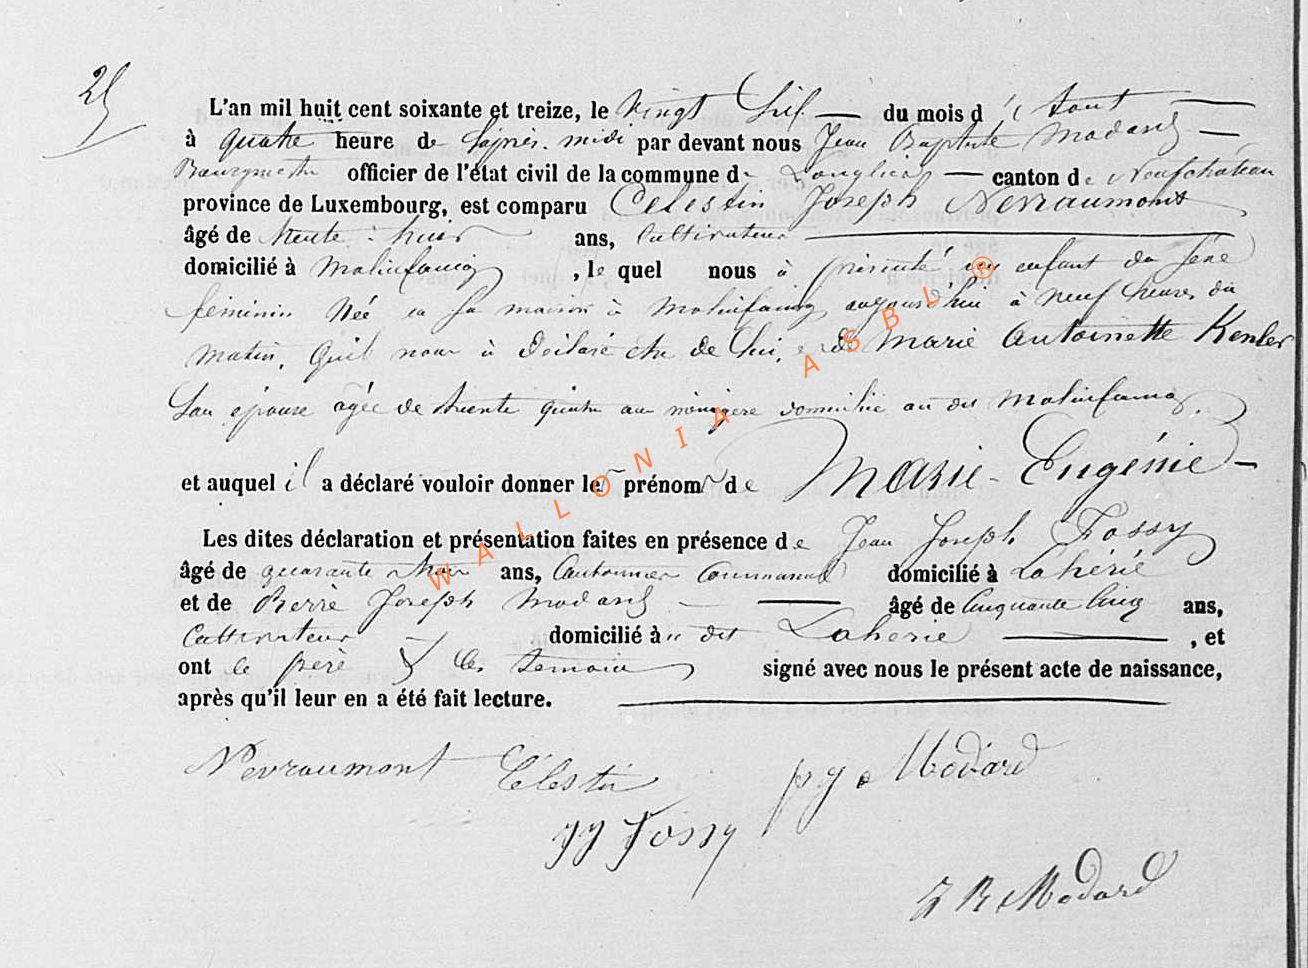 25
L'an mil huit cent soixante et treize, le vingt du mois d'août
à quatre heure de l'après-midi par devant nous Jean Baptiste Modard
Bourgmestre officier de l'état civil de la commune de Longlier canton de Neufchâteau
province de Luxembourg, est comparu Celestin Joseph Nevraumont
âgé de trente-huit ans, Cultivateur
domicilié à Molinfaing, lequel nous à présenté un enfant du sexe
féminin Née en sa maison à Molinfaing aujourd'hui à neuf heures du
matin, quil nous à déclaré être de lui, et de Marie Antoinette Kenler
Son épouse agée de trente quatre ans ménagere domiciliée au dit Molinfaing
et auquel il a déclaré vouloir donner les prénoms de Marie-Eugénie
Les dites déclaration et présentation faites en présence de Jean Joseph Fossy
âgé de quarante ans, Cantonnier Communal domicilié à Lahérie
et de Pierre Joseph Modard âgé de Cinquante Cinq ans,
Cultivateur domicilié au dit Laherie, et
ont le père & les temoins signé avec nous le présent acte de naissance,
après qu'il leur en a été fait lecture.
Nevraumont Célestin
pj Modard
JJ Fossy
J B Modard
WALLONIA ASBL ®